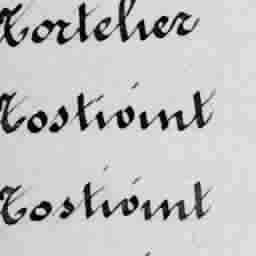 Tortelier
Tostivint
Tostivint